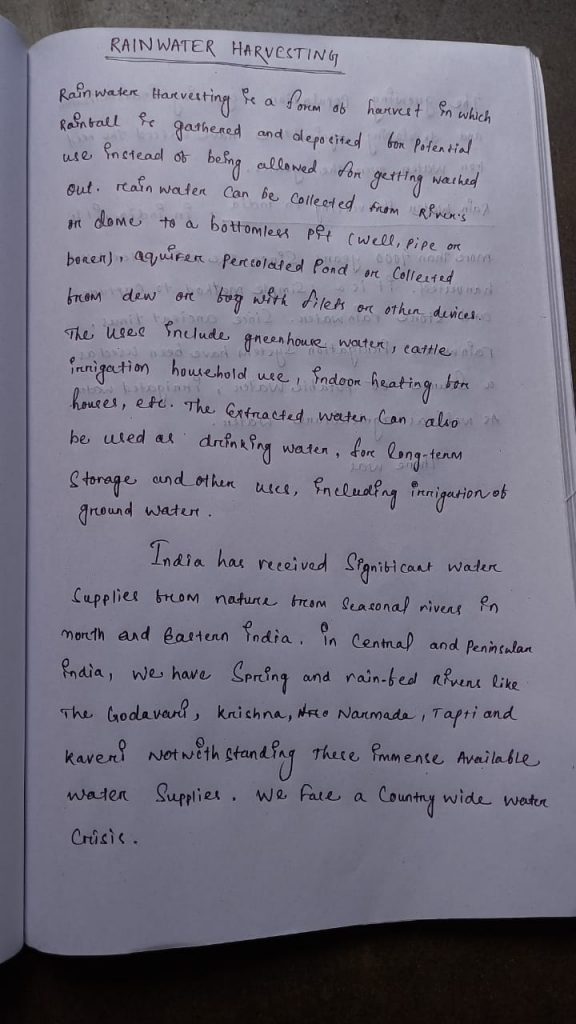 RAINWATER HARVESTING
Rainwater Harvesting is a form of harvest in which
Rainfall is gathered and deposited for potential
use instead of being allowed for getting washed
out. rain water can be collected from River's
or dome to a bottomless pit (well, pipe or
borer), aquirer percolated Pond or Collected
from dew or fog with filets or other devices.
The uses include greenhouse water, cattle
irrigation household use, indoor heating for
houses, etc. The Extracted water, Can also
be used as drinking water, for long-term
Storage and other uses, including irrigation of
ground water.
India has received Significant water
Supplies from nature from Seasonal rivers in
north and Eastern India. in Central and Peninsular
India, We have Spring and rain-fed Rivers like
The Godavari, Krishna, Narmada, Tapti and
Kaveri Notwithstanding These immense Available
Water Supplies. We Face a Country wide water
Crisis.